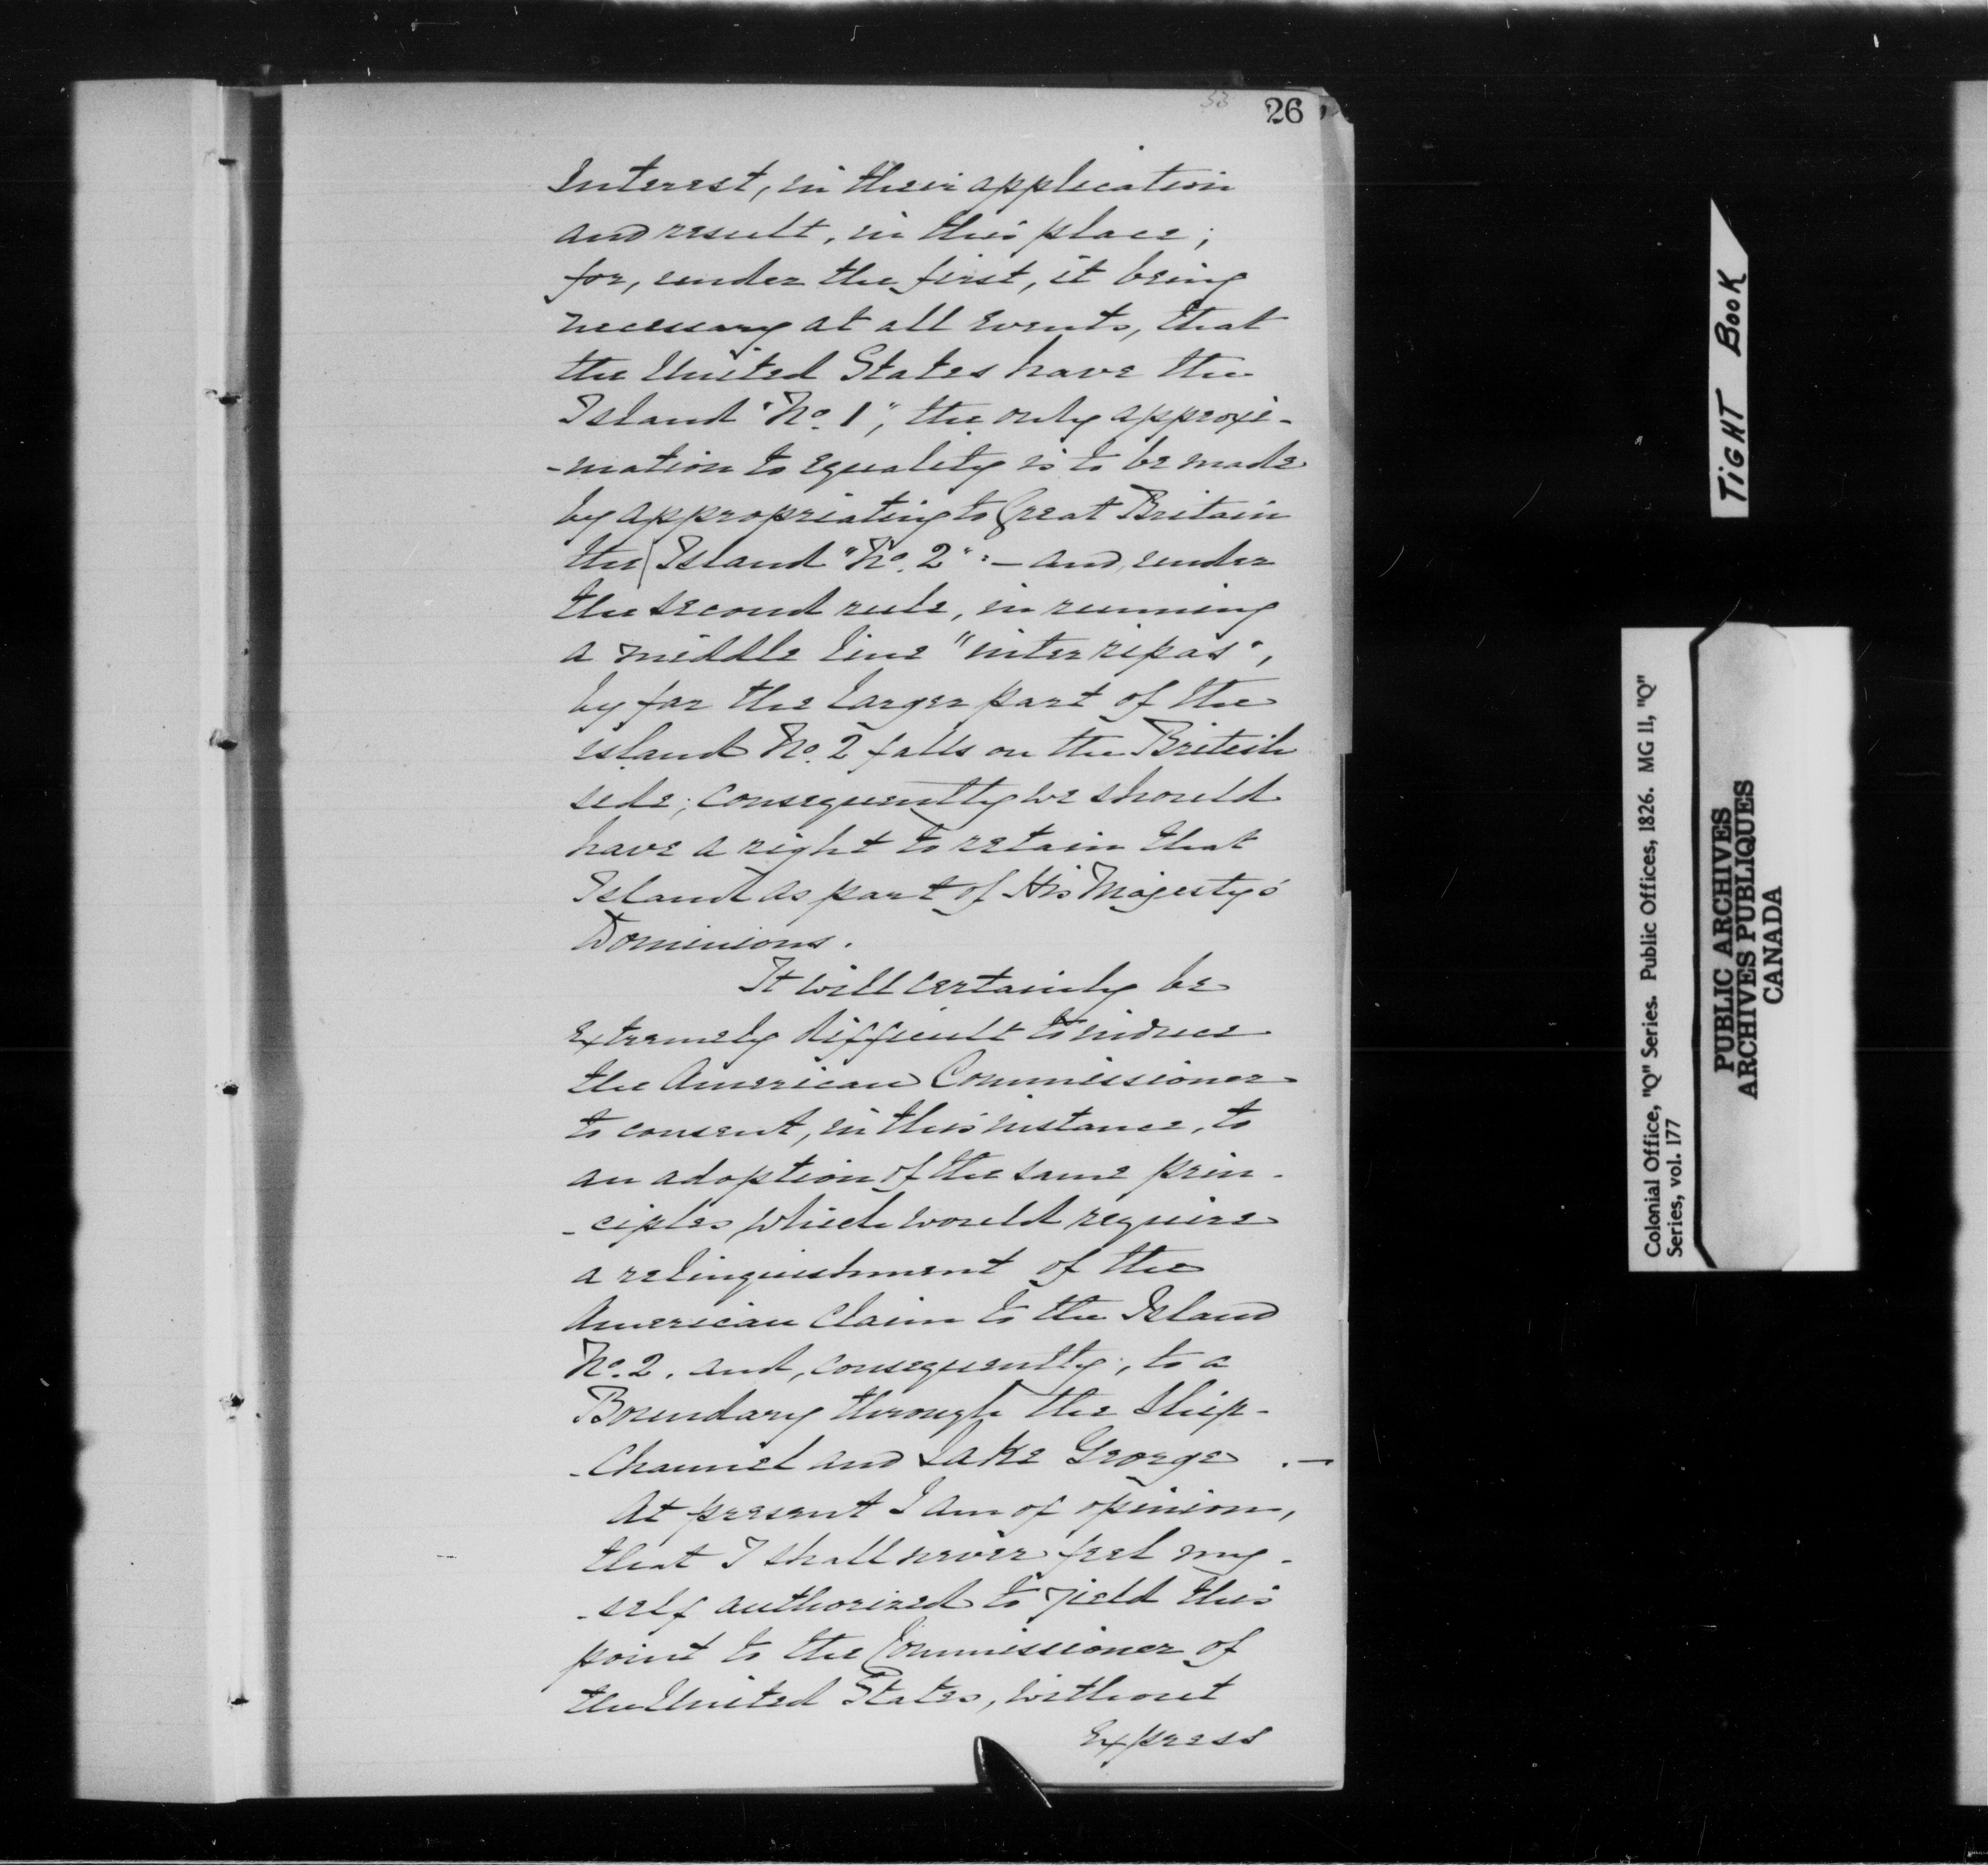 53 26
Interest, in their application
and result, in this place;
for, under the first, it being
necessary at all events, that
the United States have the
Island "No. 1", the only approxi-
-mation to equality is to be made
by appropriating to Great Britain
the Island "No. 2": - and, under
the second rule, in running
a middle line "inter ripas",
by far the larger part of the
island No. 2 falls on the British
side; consequently we should
have a right to retain that
Island as part of His Majesty's
Dominions.
It will certainly be
extremely difficult to induce
the American Commissioner
to consent, in this instance, to
an adoption of the same prin-
-ciples, which would require
a relinquishment of the
American Claim to the Island
No. 2. and, consequently, to a
Boundary through the Ship-
-Channel and Lake George. -
At present I am of opinion,
that I shall never feel my-
-self authorized to yield this
point to the Commissioner of
the United States, without
express
TIGHT BOOK
Colonial Office, "Q" Series. Public Offices, 1826. MG 11, "Q"
Series, vol. 177
PUBLIC ARCHIVES
ARCHIVES PUBLIQUES
CANADA